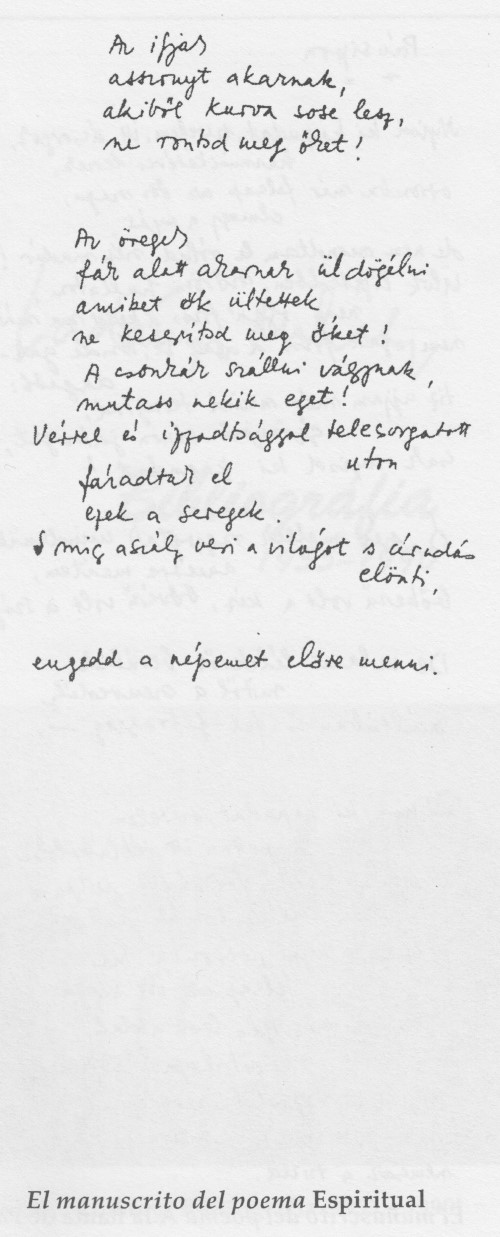 Az ifjak
asszonyt akarnak,
akiből kurva sose lesz,
ne rontsd meg őket!
Az öregek
fák alatt akarnak üldögélni
amiket ők ültettek
ne keserítsd meg őket!
A csonkák szállni vágynak,
mutass nekik eget!
Vérrel és izzadtsággal telecsorgatott
uton
fáradtak el
ezek a seregek.
S míg aszály veri a világot s áradás
elönti,
engedd a népemet előre menni.
El manuscrito del poema Espiritual